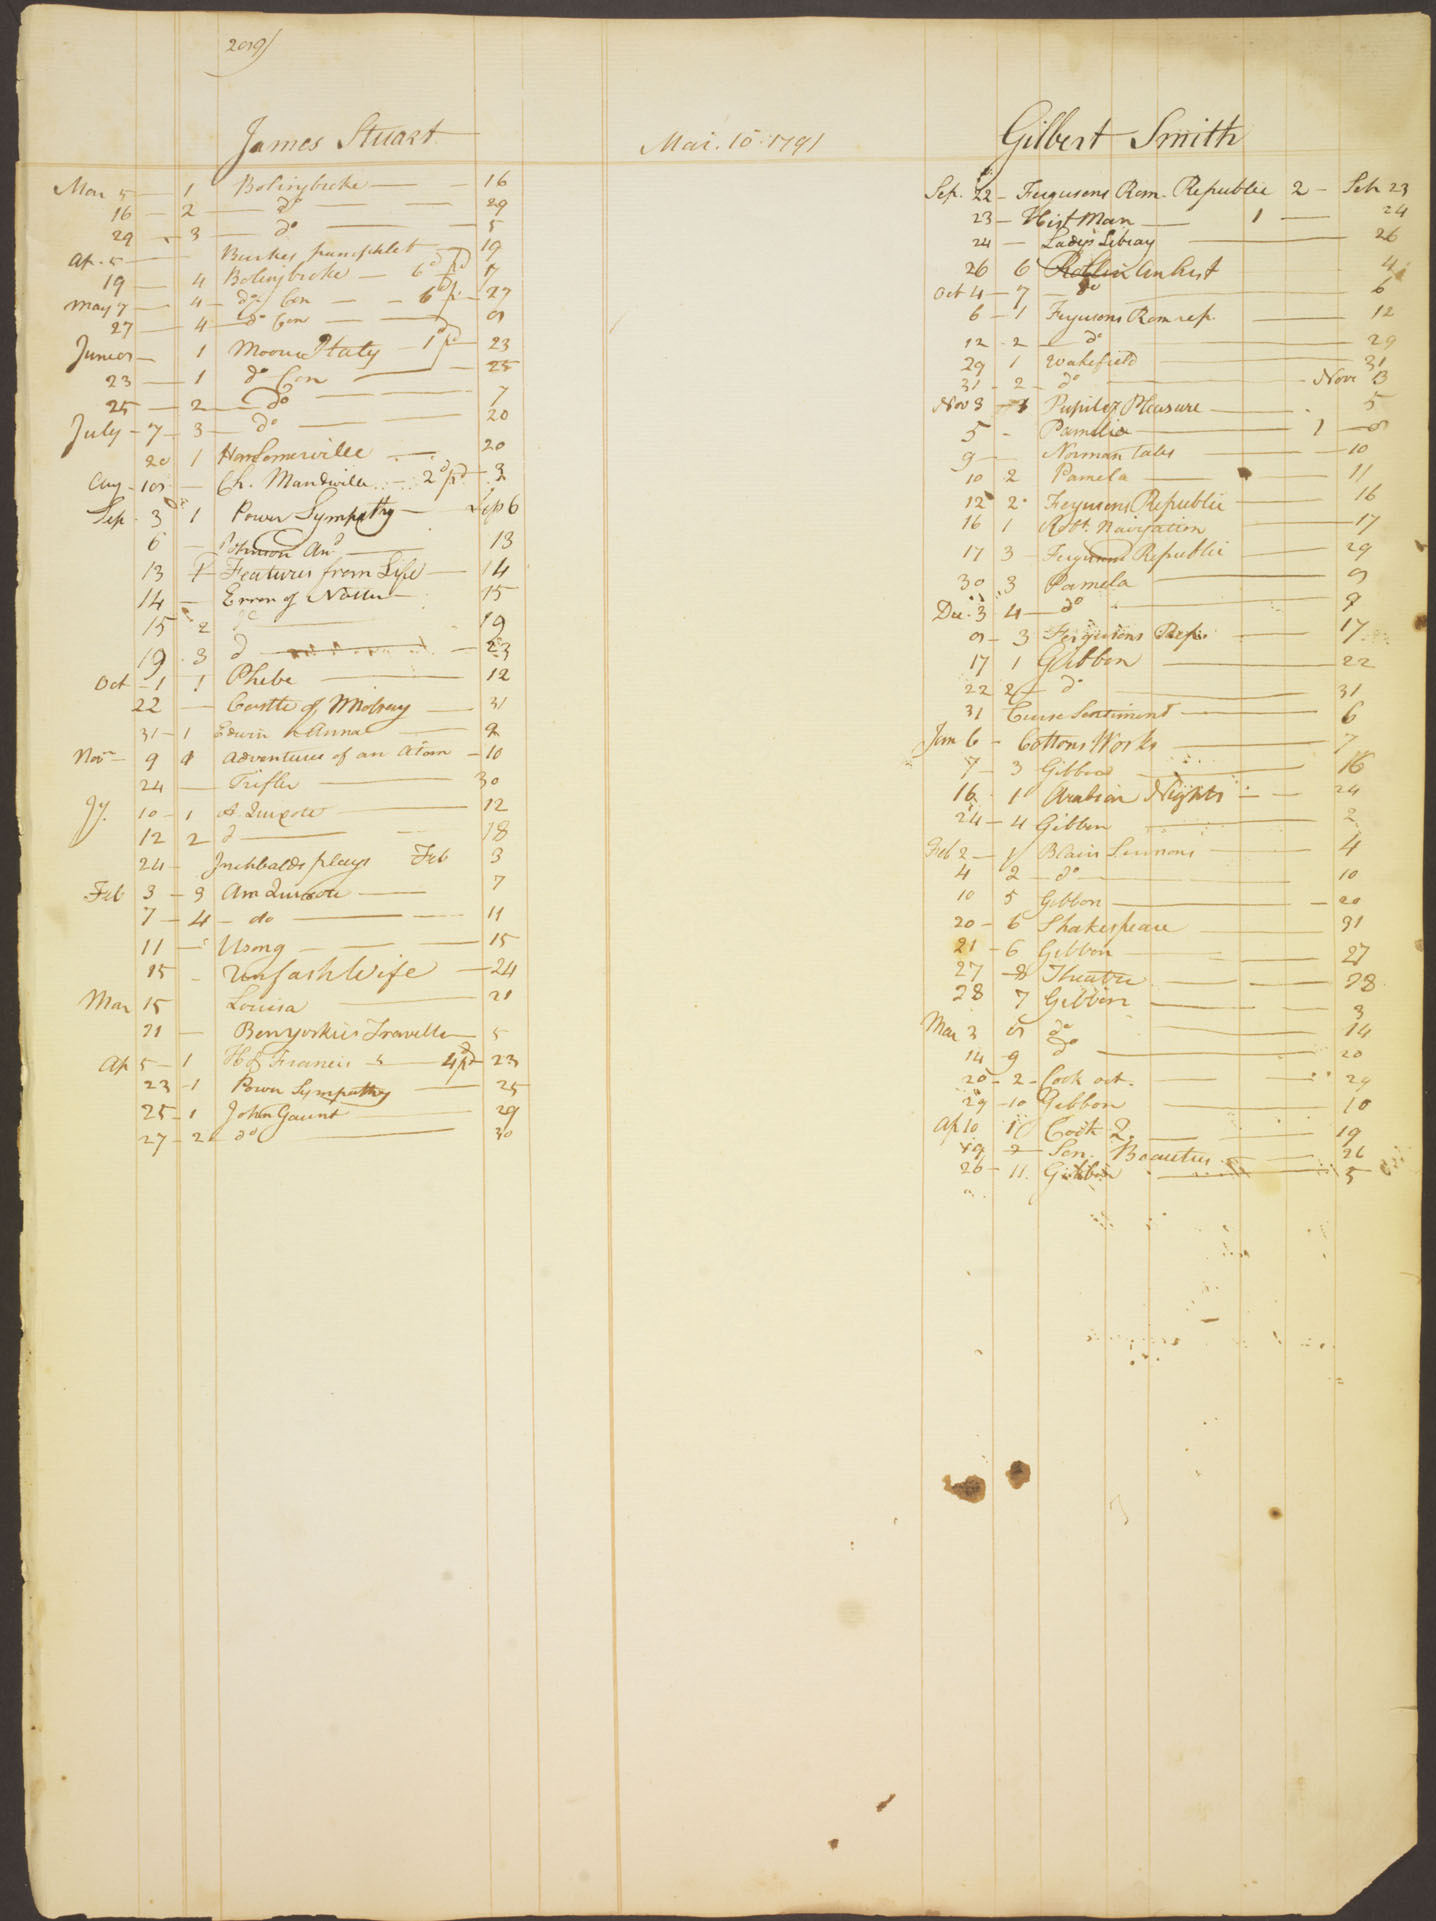 209/
James Stuart
Mar 5 — 1 Bolingbroke — — 16
16 — 2 — do — 29
29 — 3 — do — — 5
Ap. 5 — Burkes pamphlet — 19
19 — 4 Bolingbroke — 6d pd 7
May 7 — 4 — do Con — — 6 pd — 27
27 — 4 — do Con — — 8
June 8 — 1 Moores Italy — 1d pd — 23
23 — 1 do Con — — 25
25 — 2 — do — 7
July — 7 — 3 — do — — 20
20 1 Har Somerville — 20
Aug — 18 — Ch. Mandville — 2d pd — 3
Sep. 3 1 Power Sympathy — Sep 6
6 — Johnson And — 13
13 1 — Features from Life — 14
14 — Errors of Nature — 15
15 2 do — 19
19 . 3 d — 23
Oct — 1 1 Phebe — 12
22 — Castle of Mobray — 31
31 — 1 Edwin & Anna — 9
Nov — 9 1 Adventures of an Atom — 10
24 — Trifler — 30
Jy. 10 — 1 A. Quixote — 12
12 2 d — 18
24 — Inchbalds plays Feb 3
Feb 3 — 3 Am Quixote — 7
7 — 4 — do — 11
11 — Usong — 15
15 — Unfash Wife — 24
Mar 15 Louisa — 21
21 — Benyorkies Travells — 5
Ap 5 — 1 H & Francis — 4 pd — 23
23 — 1 Power Sympathy — 25
25 — 1 John Gaunt — 29
27 — 2 — do — 30
Mar. 15. 1791
Gilbert Smith
Sep. 22 — Fergusons Rom. Republic 2 — Seb 23
23 — Hist Man — 1 — 24
24 — Ladys Libray — 26
26 6 Rollin An hist 4
Oct 4 — 7 — do — 6
6 — 1 Fergusons Rom rep. — 12
12 . 2 — do — 29
29 1 Wakefield — 31
31 — 2 — do — Nov 3
Nov 3 — 1 Pupil of Pleasure — 5
5 — Pamelia — 1 — 8
9 — Norman tales — 10
10 2 Pamela — 11
12 2 . Fergusons Republic — 16
16 1 Robt. Navigation — 17
17 3 — Fergusons Republic — 29
30 . 3 Pamela — 8
Dec. 3 4 — do — 9
8 — 3 Fergusons Rep. — 17
17 1 Gibbon — 22
22 2 — do — 31
31 Curse Sentiment — 6
Jan 6 — Cottons Works — 7
7 — 3 Gibbon — 16
16 1 Arabian Nights — 24
24 — 4 Gibbon — 2
Feb 2 — 1 Blairs Sermons — 4
4 2 — do — 10
10 5 Gibbon — 20
20 — 6 Shakespeare — 31
21 — 6 Gibbon — 27
27 — 8 Theatre — 28
28 7 Gibbon — 3
Mar 3 8 do — 14
14 9 do — 20
20 — 2 — Cook oct. — 29
29 — 10 Gibbon — 10
Ap 10 1 Cook 2. — 19
19 2 — Sen. Beauties — 26
26 — 11. Gibbon — 5